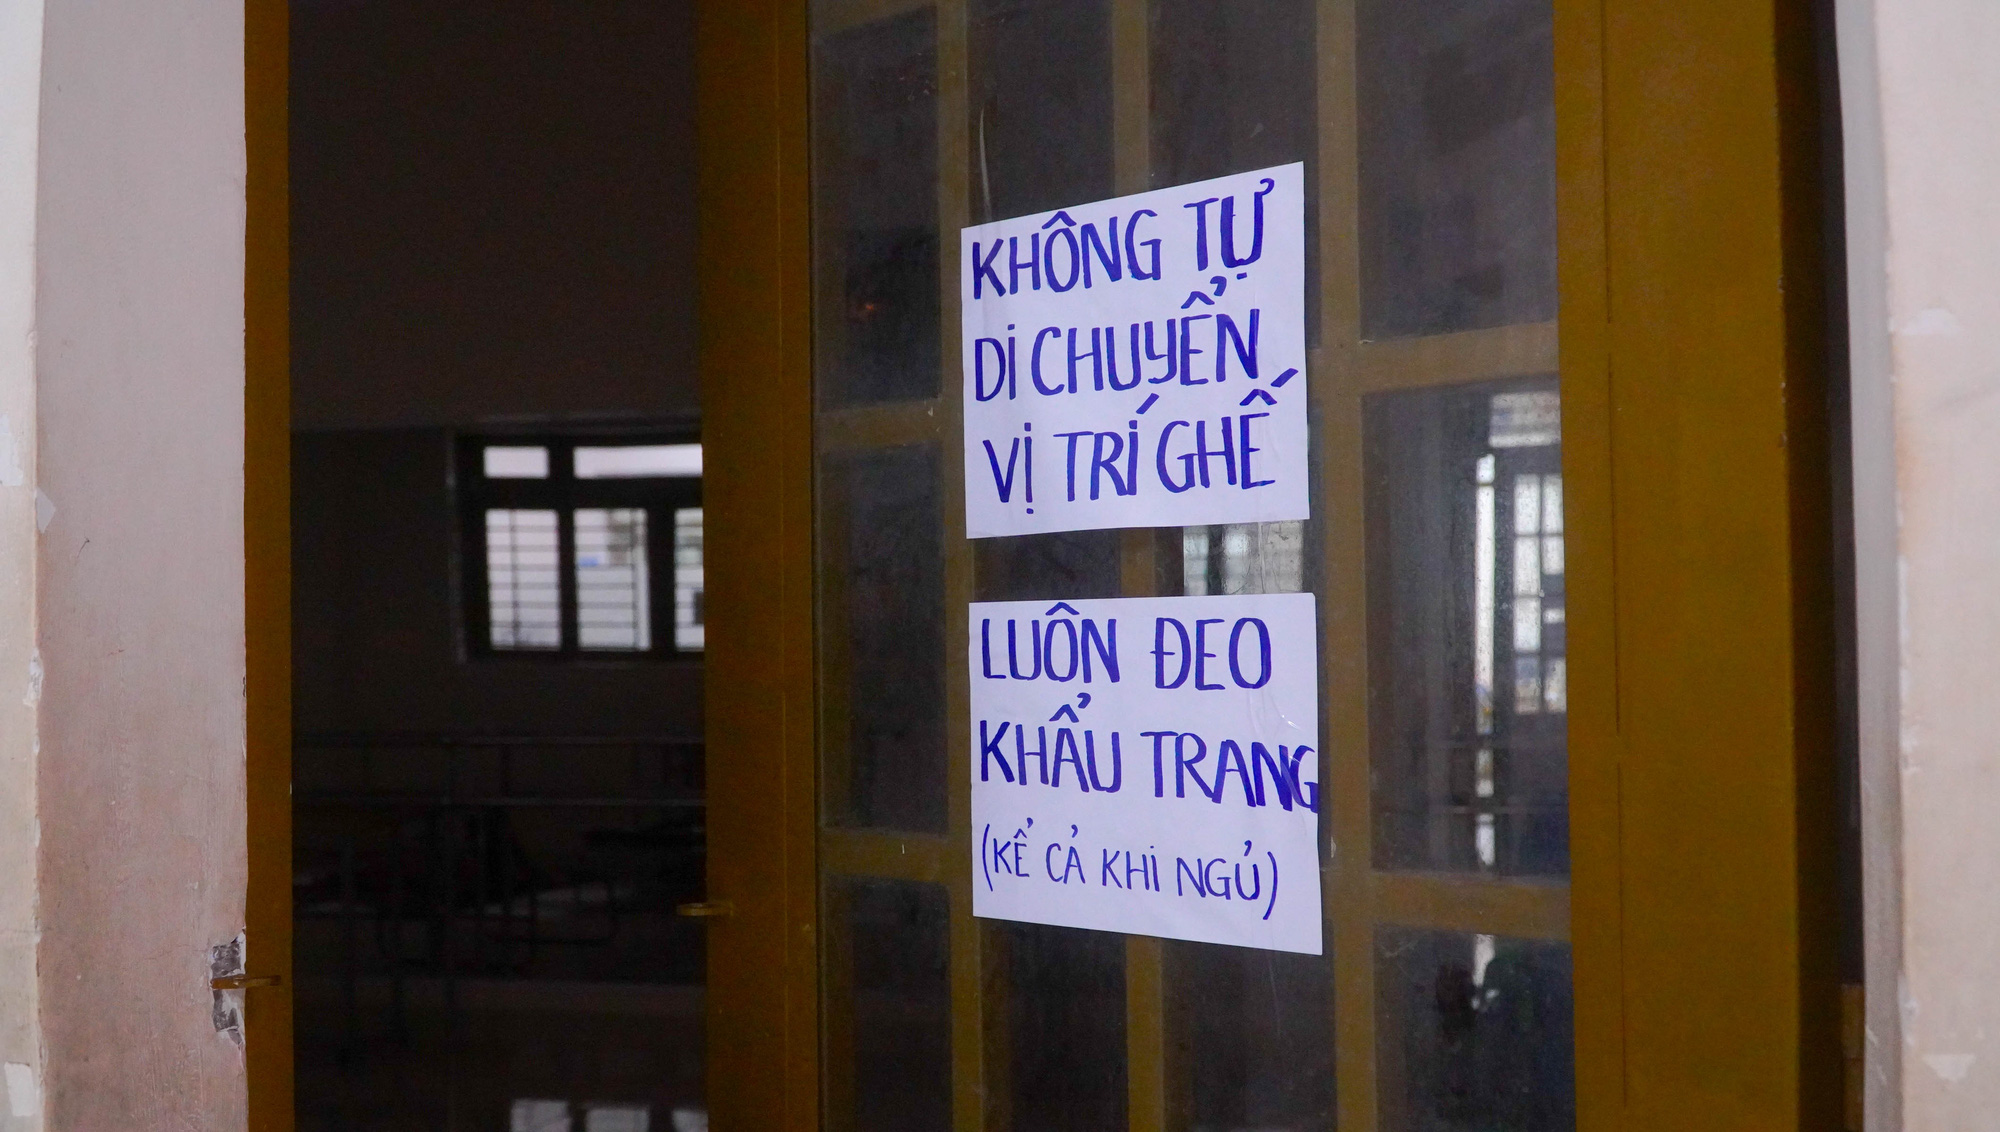 KHÔNG TỰ
DI CHUYỂN
VỊ TRÍ GHẾ
LUÔN ĐEO
KHẨU TRANG
(KỂ CẢ KHI NGỦ)